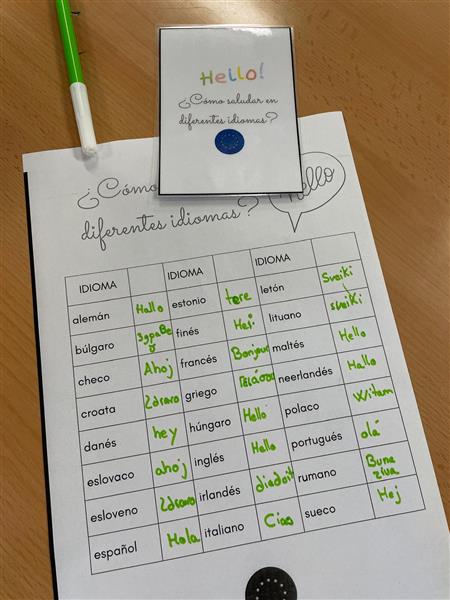 Hello!
¿Cómo saludar en
diferentes idiomas?
¿Cómo
diferentes idiomas?
Hello
IDIOMA IDIOMA IDIOMA
alemán Hallo estonio tere letón Sveiki
búlgaro здраве finés Hei lituano sveiki
checo Ahoj francés Bonjour maltés Hello
croata Zdravo griego Γειάσου neerlandés Hallo
danés hey húngaro Hello polaco Witam
eslovaco ahoj inglés Hello portugués olá
esloveno Zdravo irlandés diadoit rumano Buna ziua
español Hola italiano Ciao sueco Hej